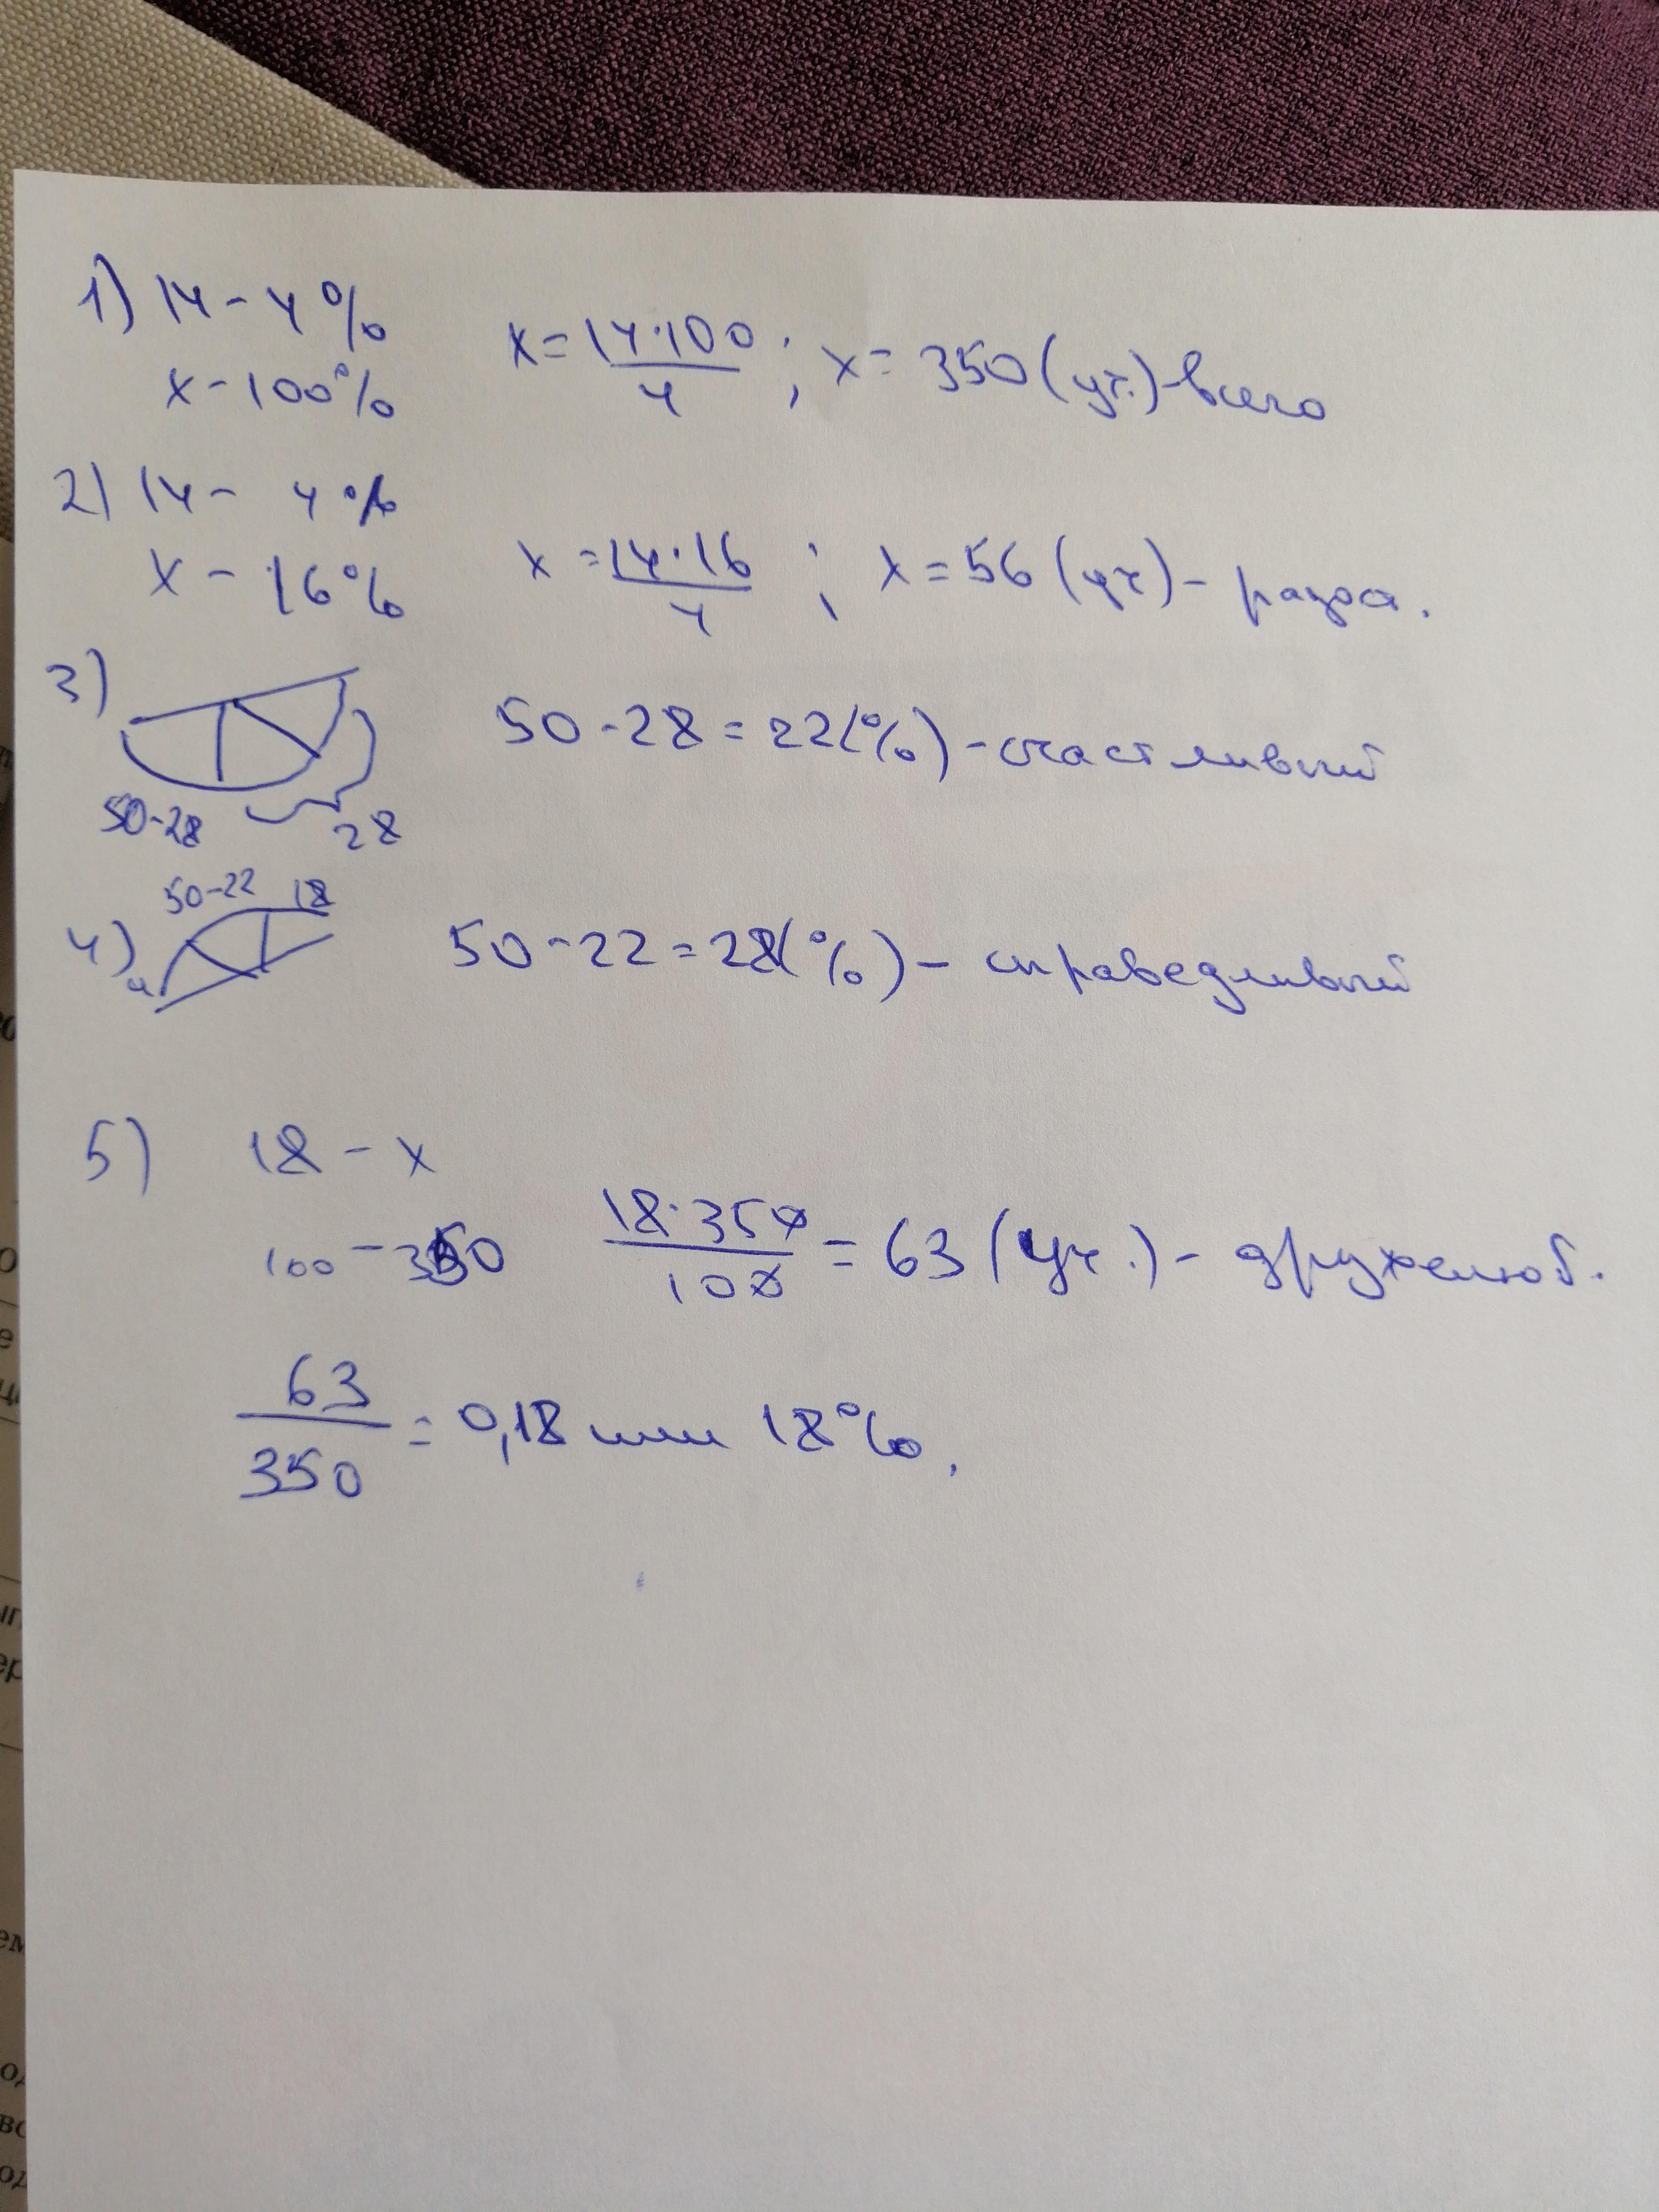 1) 14 - 4%
x - 100%
x = 14·100/4 ; x = 350 (уч.) - всего
2) 14 - 4%
x - 16%
x = 14·16/4 ; x = 56 (уч) -
3)
50-28
28
50 - 28 = 22(%) - счастливый
50-22 18
4) 4
50 - 22 = 28(%) - справедливый
5) 18 - x
100 - 350
18·350/100 = 63 (уч.) - дружелюб.
63/350 = 0,18 или 18%.